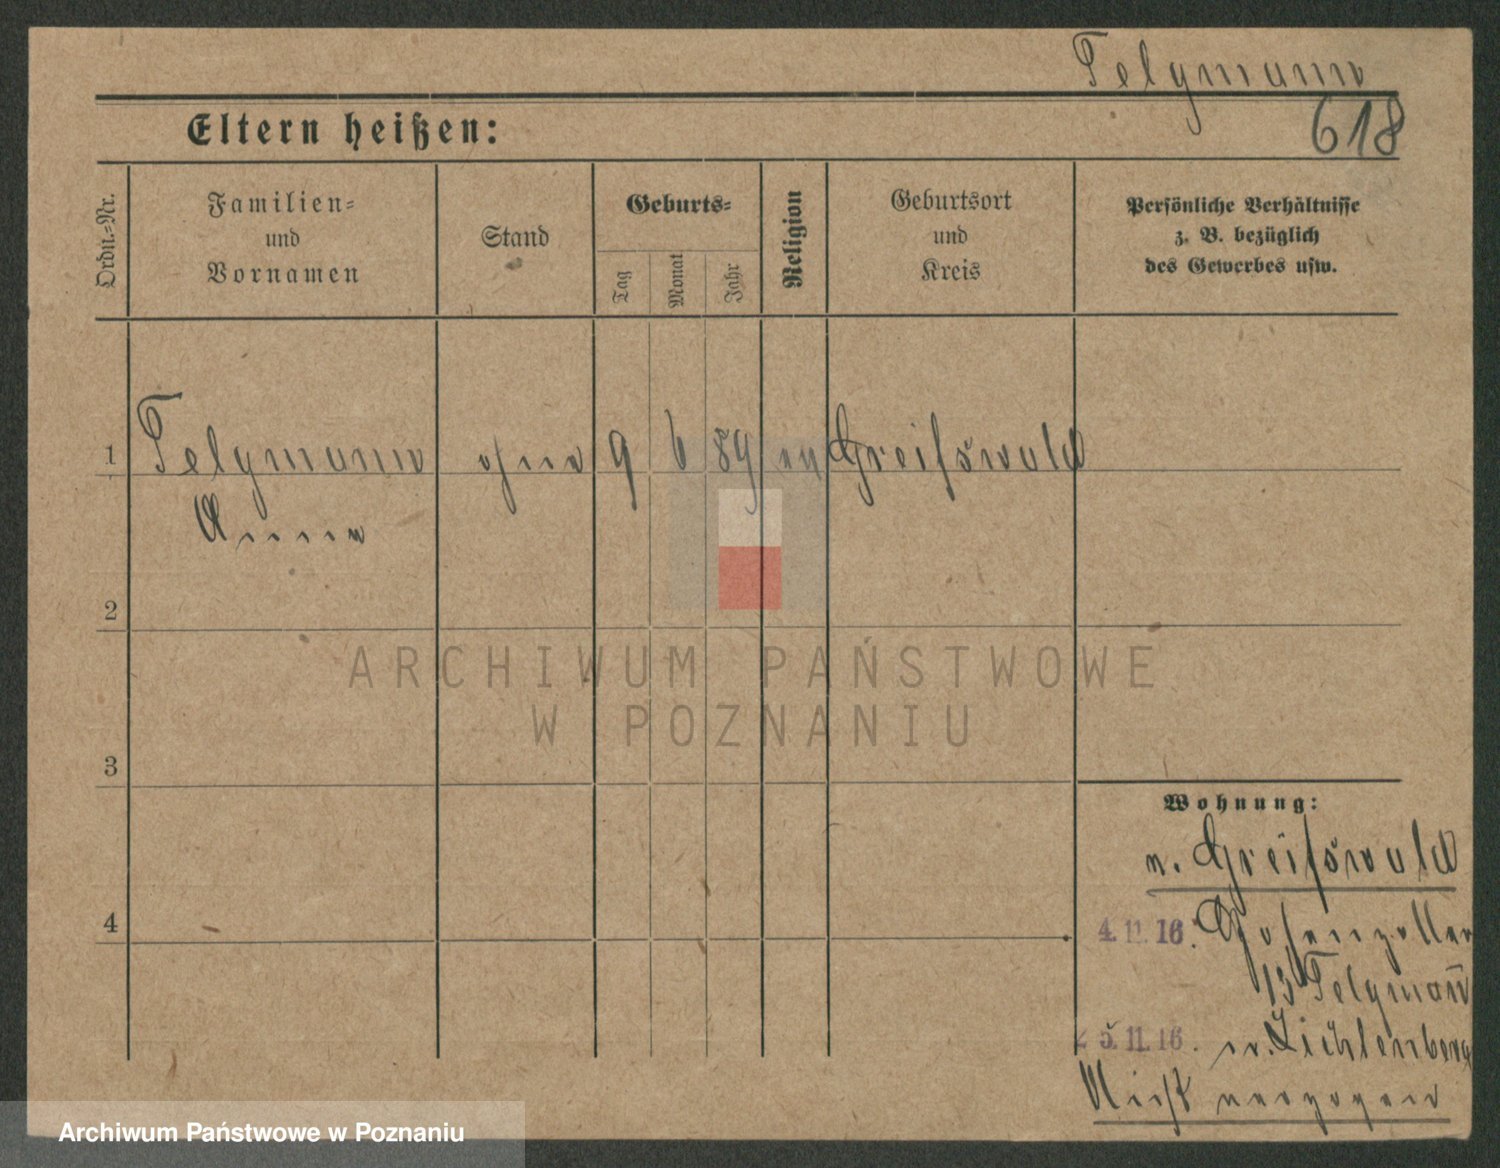 Telgmann
618
Eltern heißen:
Ordn.-Nr.
Familien-
und
Vornamen
Stand
Geburts-
Tag
Monat
Jahr
Religion
Geburtsort
und
Kreis
Persönliche Verhältnisse
z. B. bezüglich
des Gewerbes usw.
1 Telgmann ohne 9 6 89 ev Greifswald
Anna
2
3
4
Wohnung:
n. Greifswald
4. 11. 16. Hohenzoller
13 Telgmañ
25. 11. 16. n. Lichtenberg
Nicht verzogen
ARCHIWUM PAŃSTWOWE
W POZNANIU
Archiwum Państwowe w Poznaniu